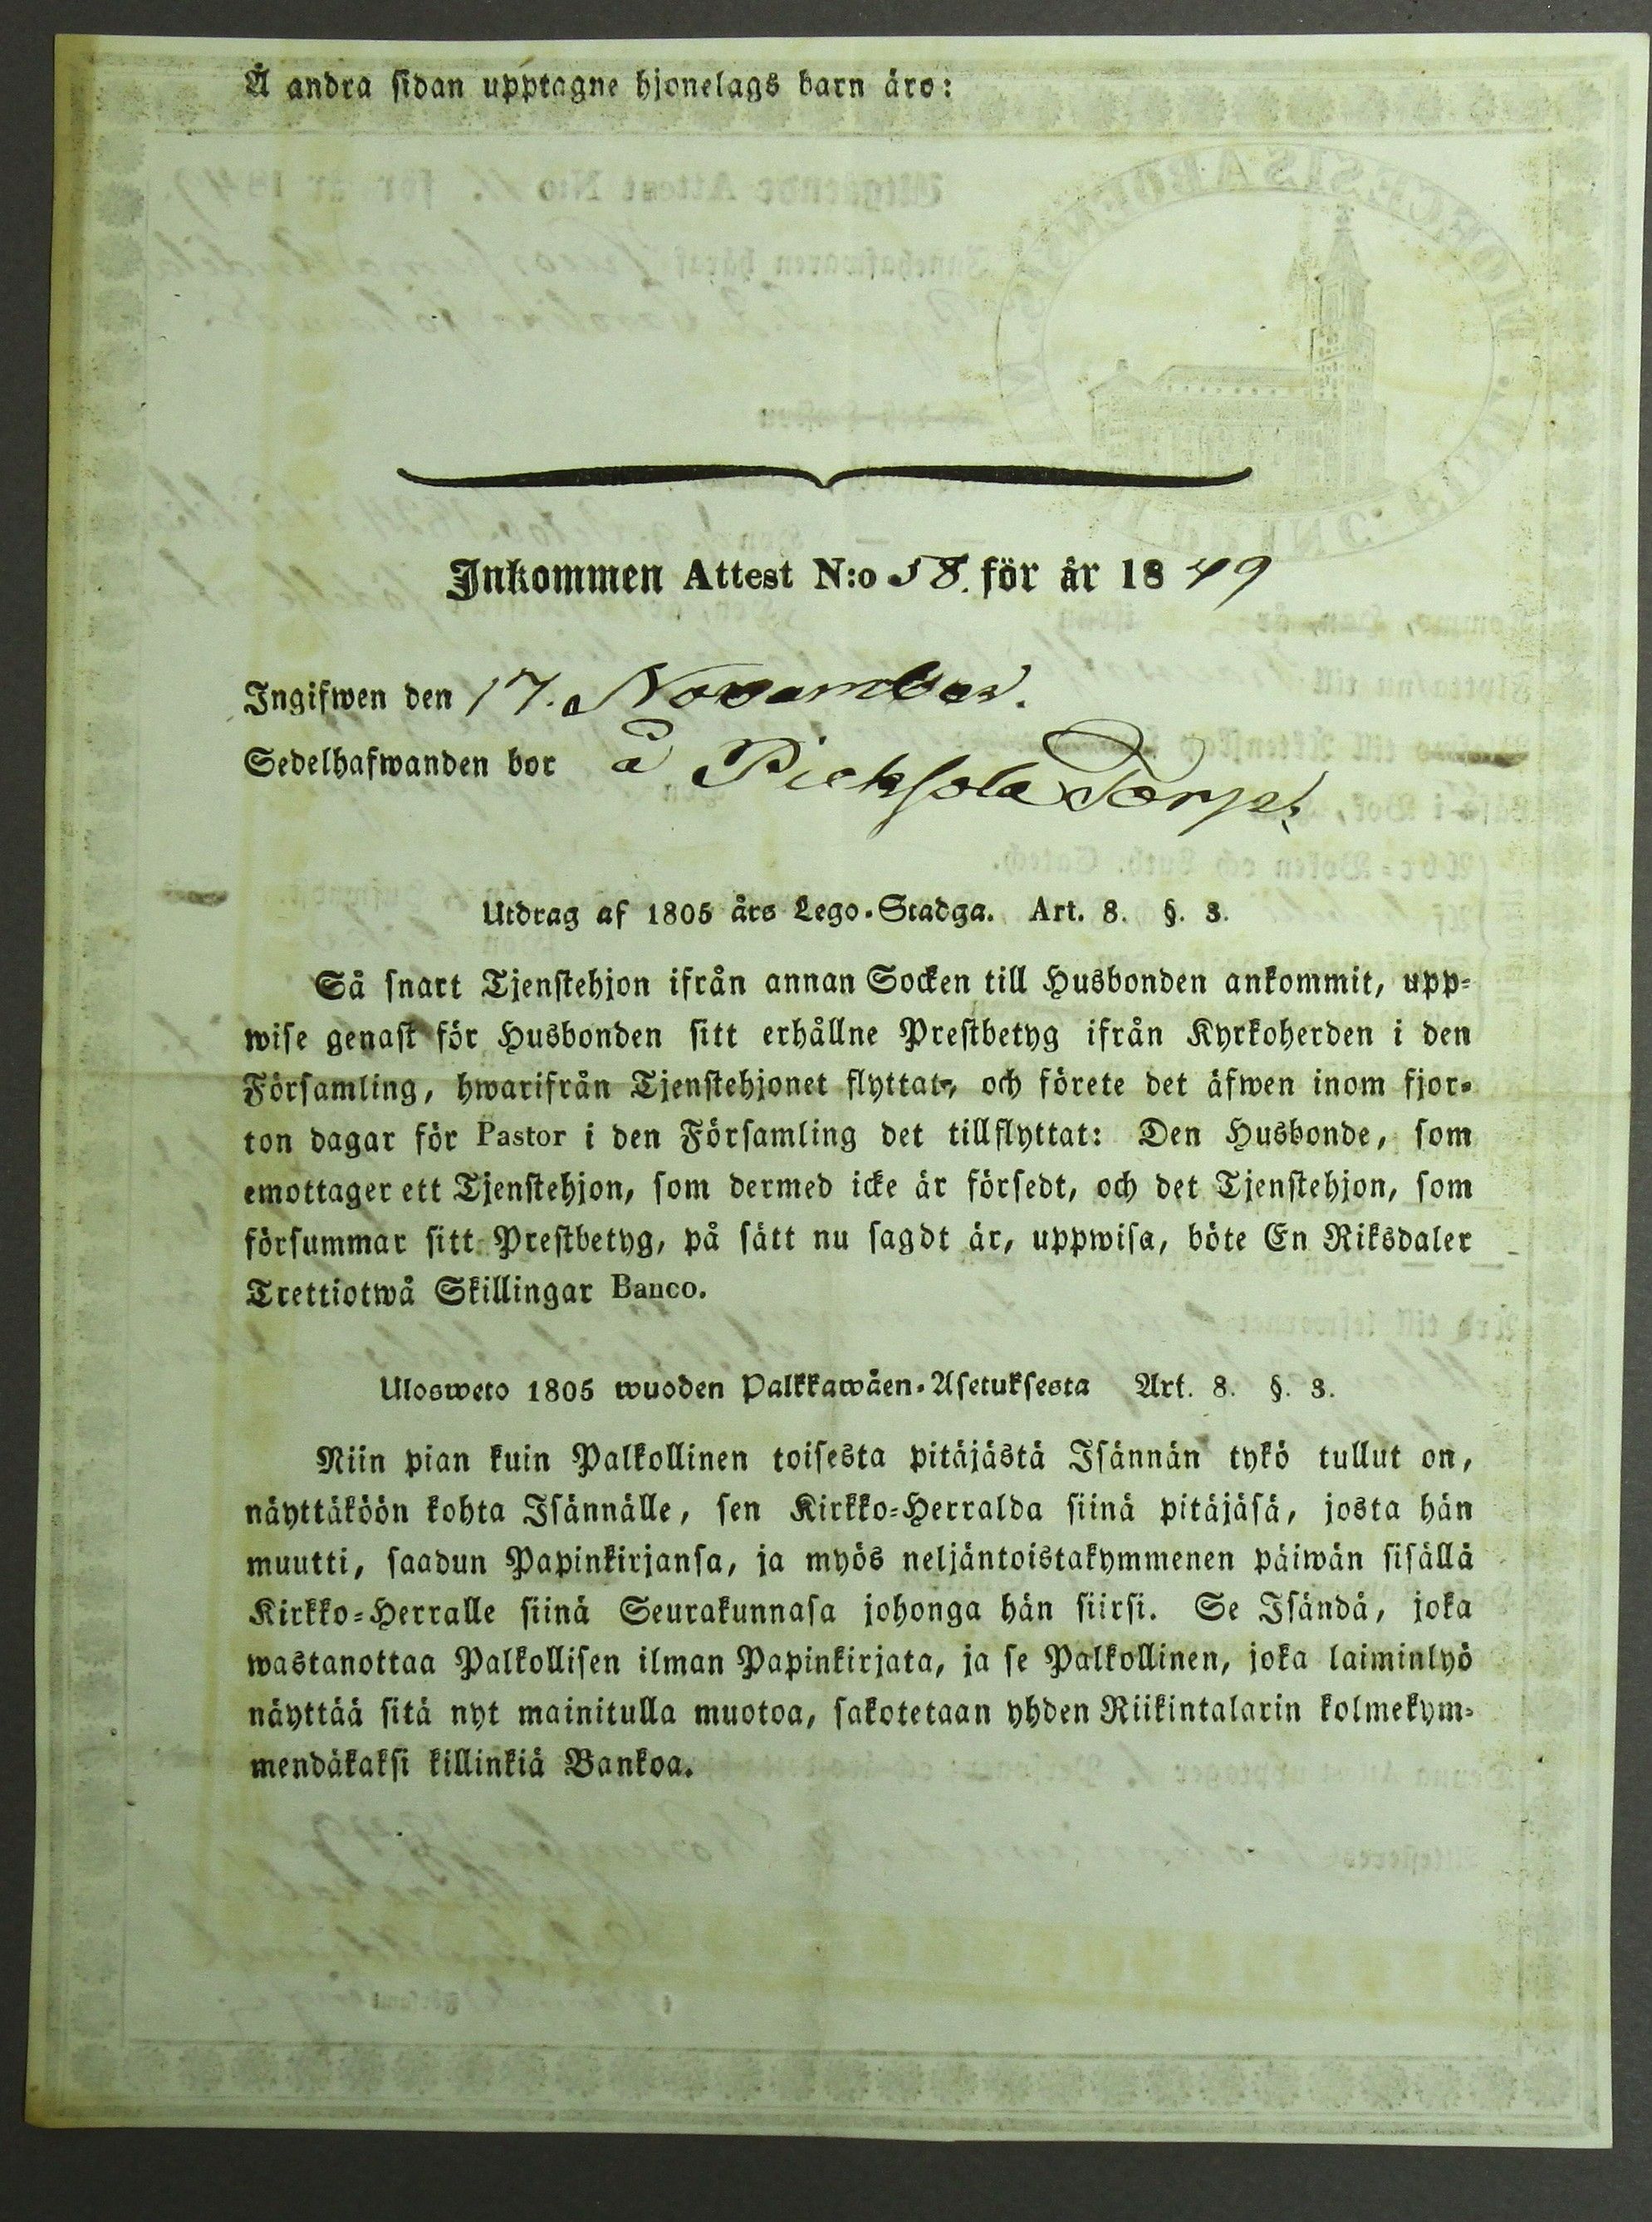 Å andra sidan upptagne hjonelags barn äro:
Inkommen Attest N:o 58. för år 1849
Ingifwen den 17. November.
Sedelhafwanden bor å Torp.
Utdrag af 1805 års Lego-Stadga. Art. 8. §. 3.
Så snart Tjenstehjon ifrån annan Socken till Husbonden ankommit, upp=
wise genast för Husbonden sitt erhållne Prestbetyg ifrån Kyrkoherden i den
Församling, hwarifrån Tjenstehjonet flyttat, och förete det äfwen inom fjor=
ton dagar för Pastor i den Församling det tillflyttat: Den Husbonde, som
emottager ett Tjenstehjon, som dermed icke är försedt, och det Tjenstehjon, som
försummar sitt Prestbetyg, på sätt nu sagdt är, uppwisa, böte En Riksdaler
Trettiotwå Skillingar Banco.
Ulosweto 1805 wuoden Palkkawäen-Asetuksesta Art. 8. §. 3.
Niin pian kuin Palkollinen toisesta pitäjästä Isännän tykö tullut on,
näyttäköön kohta Isännälle, sen Kirkko=Herralda siinä pitäjäsä, josta hän
muutti, saadun Papinkirjansa, ja myös neljäntoistakymmenen päiwän sisällä
Kirkko=Herralle siinä Seurakunnasa johonga hän siirsi. Se Isändä, joka
wastanottaa Palkollisen ilman Papinkirjata, ja se Palkollinen, joka laiminlyö
näyttää sitä nyt mainitulla muotoa, sakotetaan yhden Riikintalarin kolmekym=
mendäkaksi killinkiä Bankoa.